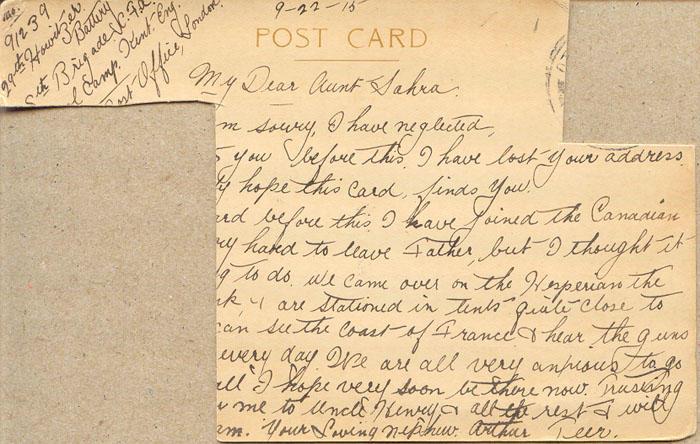 9-22-15
No.
91239
29th Howitzer
Battery
Brigade C.F.A.
Camp. Kent. Eng.
Post Office, London.
POST CARD
My Dear Aunt Sahra.
m sowry, I have neglected,
you before this. I have lost your address.
hope this card, finds you.
ard before this. I have joined the Canadian
ry hard to leave Father, but I thought it
g to do. We came over on the Hesperian the
k, & are stationed in tents quite close to
can see the coast of France & hear the guns
every day. We are all very anxious to go
all I hope very soon be there now. Trusting
me to Uncle Henry & all the rest & will
am. Your Loving nephew Arthur Teer.